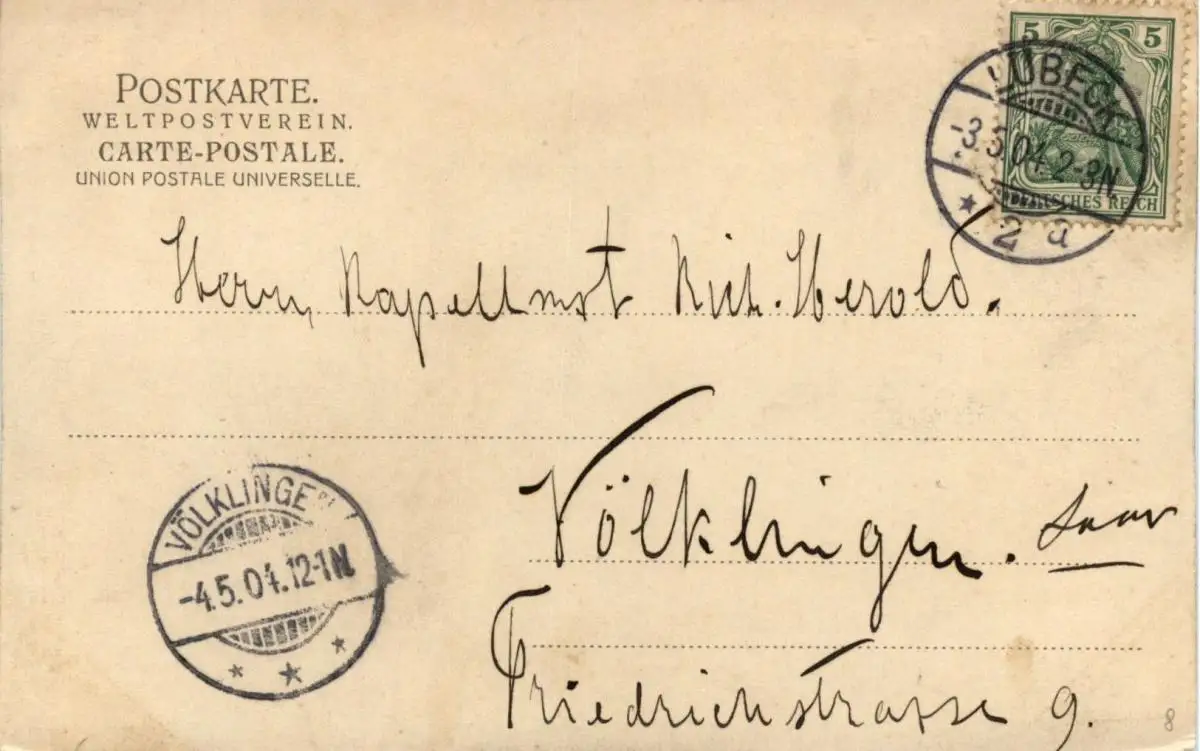 POSTKARTE.
WELTPOSTVEREIN.
CARTE-POSTALE.
UNION POSTALE UNIVERSELLE.
5 5
DEUTSCHES REICH
LÜBECK
-3.5.04.2-3N.
* 2 a
Herrn Kapellmst Rich. Herold.
Völklingen. Saar
Friedrichstrasse 9.
VÖLKLINGEN
-4.5.04.12-1N.
* * *
8